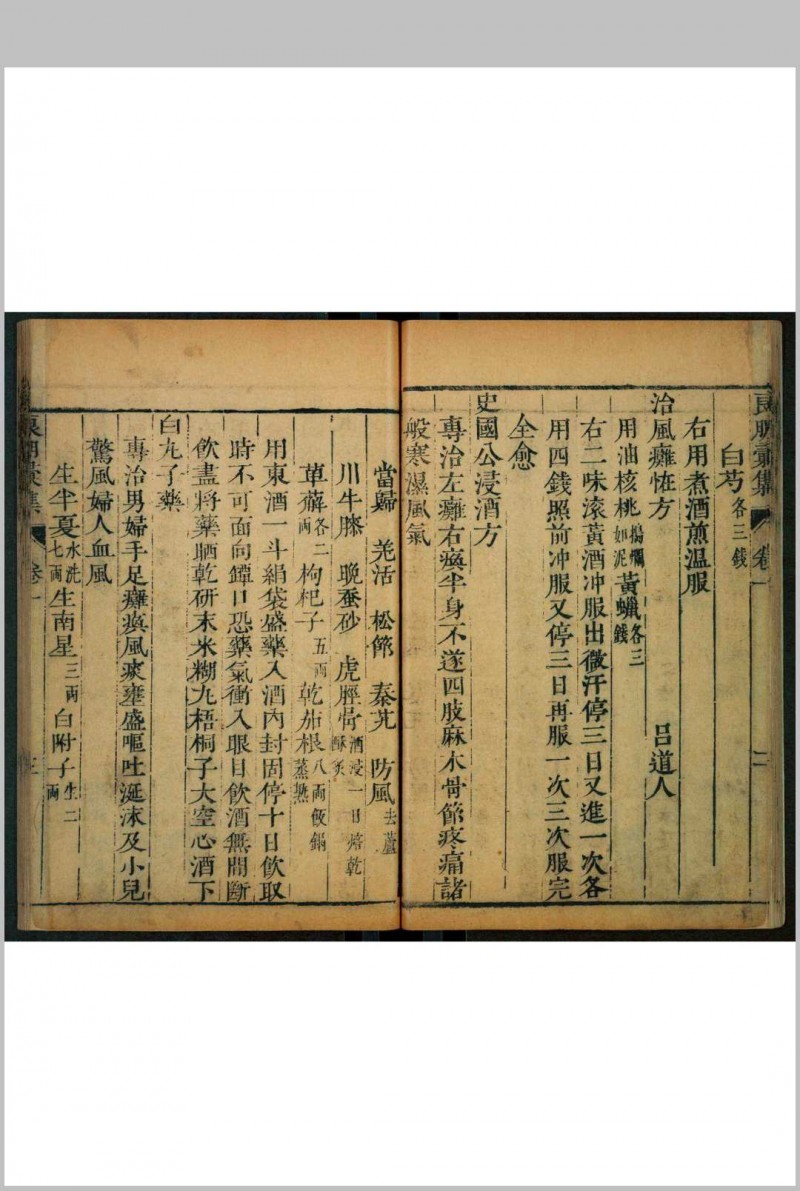 良朋彙集 卷一 二
白芍各三錢
右用煮酒煎温服
治風癱恠方 呂道人
用油核桃搗爛如泥黃蠟各三錢
右二味滚黃酒冲服出微汗停三日又進一次各
用四錢照前冲服又停三日再服一次三次服完
全愈
史國公浸酒方
專治左癱右瘓半身不遂四肢麻木骨節疼痛諸
般寒濕風氣
當歸 羌活 松節 秦艽 防風去蘆
川牛膝 晚蚕砂 虎脛骨酒浸一日焙乾酥炙
萆薢各二兩枸杞子五兩乾茄根八兩飯鍋蒸熟
用東酒一斗絹袋盛藥入酒內封固停十日飲取
時不可面向罈口恐藥氣衝入眼目飲酒無間斷
飲盡將藥晒乾研末米糊丸梧桐子大空心酒下
白丸子藥
專治男婦手足癱瘓風痰壅盛嘔吐涎沫及小兒
驚風婦人血風
生半夏水洗七兩生南星三兩白附子生二兩
良朋彙集 卷一 三